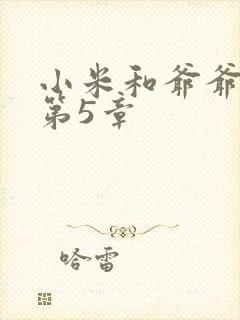 小米和爷爷
第5章
哈雷